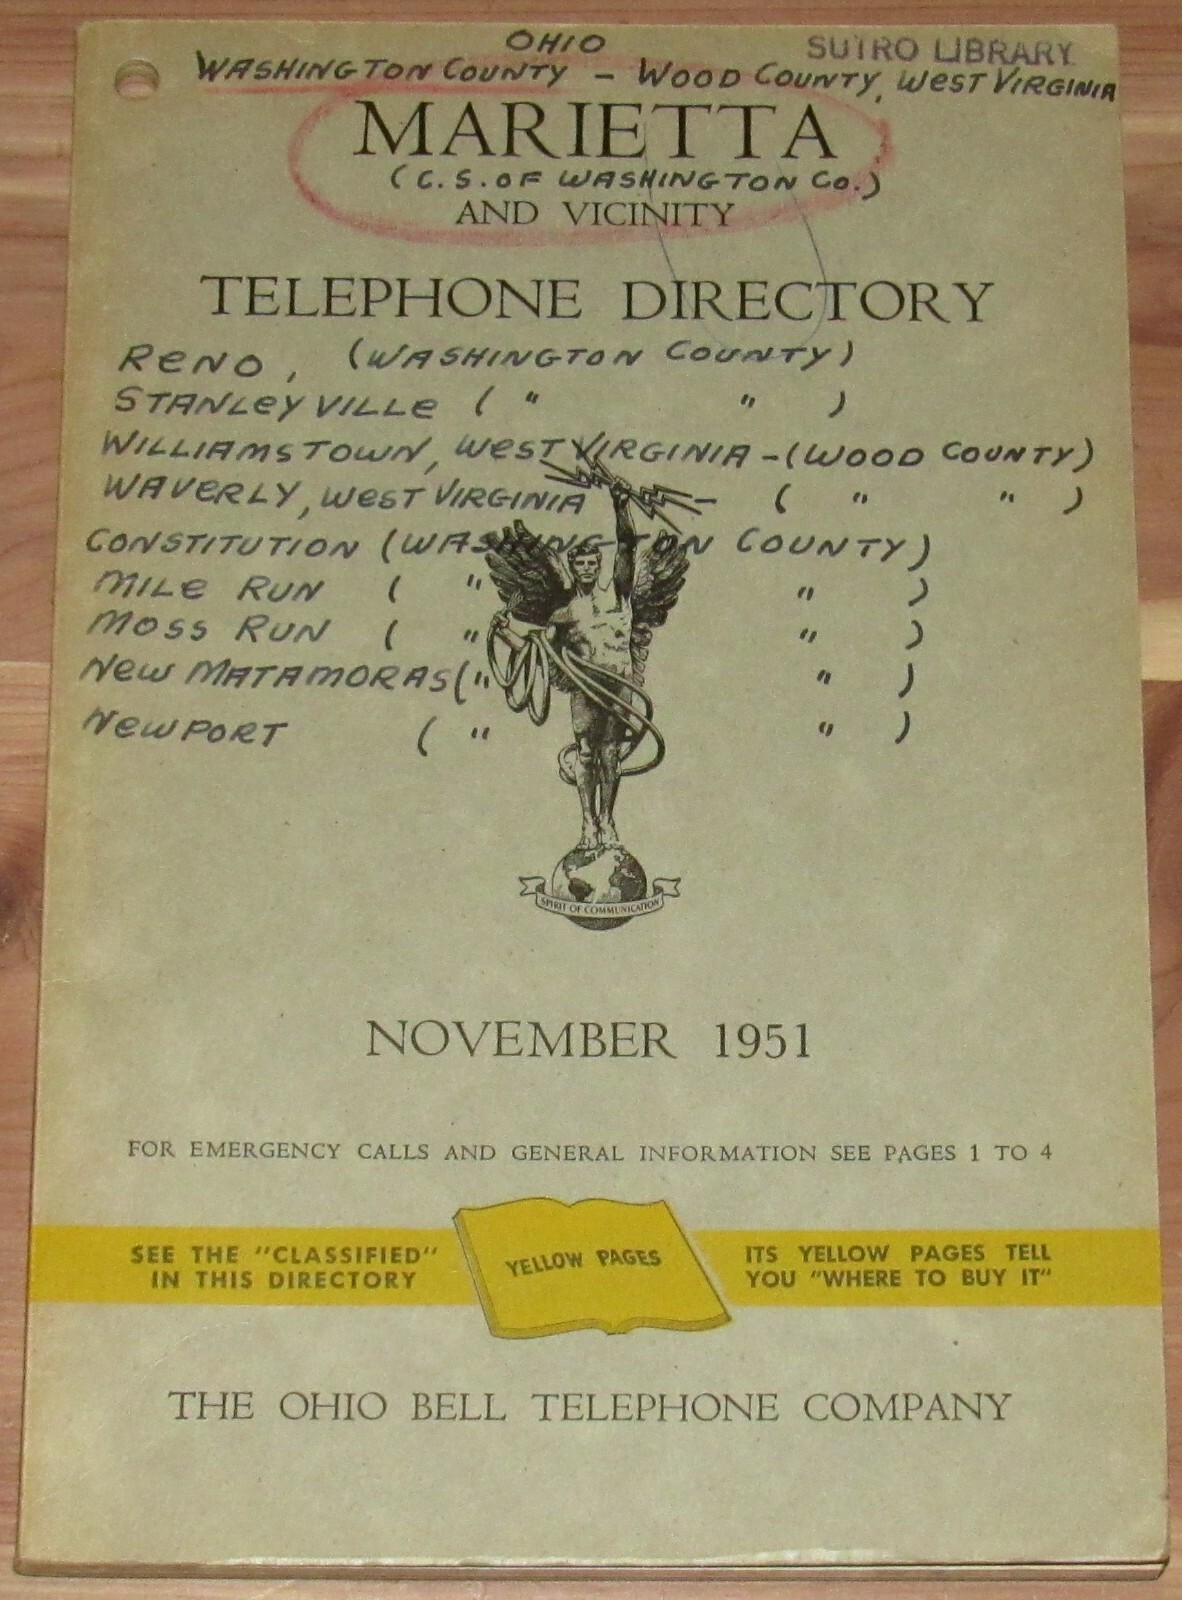 OHIO
SUTRO LIBRARY
WASHINGTON COUNTY – WOOD COUNTY, WEST VIRGINIA
MARIETTA
(C.S. OF WASHINGTON CO.)
AND VICINITY
TELEPHONE DIRECTORY
RENO, (WASHINGTON COUNTY)
STANLEYVILLE ( " " )
WILLIAMSTOWN, WEST VIRGINIA – (WOOD COUNTY)
WAVERLY, WEST VIRGINIA – ( " " )
CONSTITUTION (WASHINGTON COUNTY)
MILE RUN ( " " )
MOSS RUN ( " " )
NEW MATAMORAS ( " " )
NEWPORT ( " " )
SPIRIT OF COMMUNICATION
NOVEMBER 1951
FOR EMERGENCY CALLS AND GENERAL INFORMATION SEE PAGES 1 TO 4
SEE THE "CLASSIFIED"
IN THIS DIRECTORY
YELLOW PAGES
ITS YELLOW PAGES TELL
YOU "WHERE TO BUY IT"
THE OHIO BELL TELEPHONE COMPANY